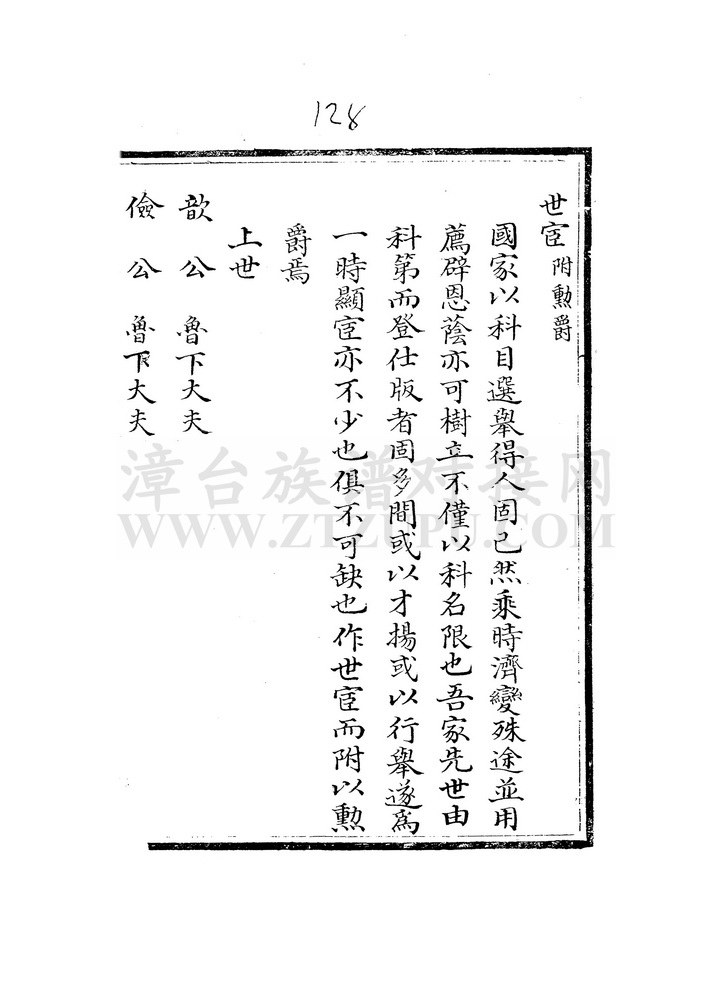 128
世宦附勲爵
國家以科目選舉得人固已然乘時濟變殊途並用
薦辟恩蔭亦可樹立不僅以科名限也吾家先世由
科第而登仕版者固多間或以才揚或以行舉遂為
一時顯宦亦不少也俱不可缺也作世宦而附以勲
爵焉
上世
歆公 魯下大夫
儉公 魯下大夫
漳台族谱对接网
WWW.ZTZUPU.COM